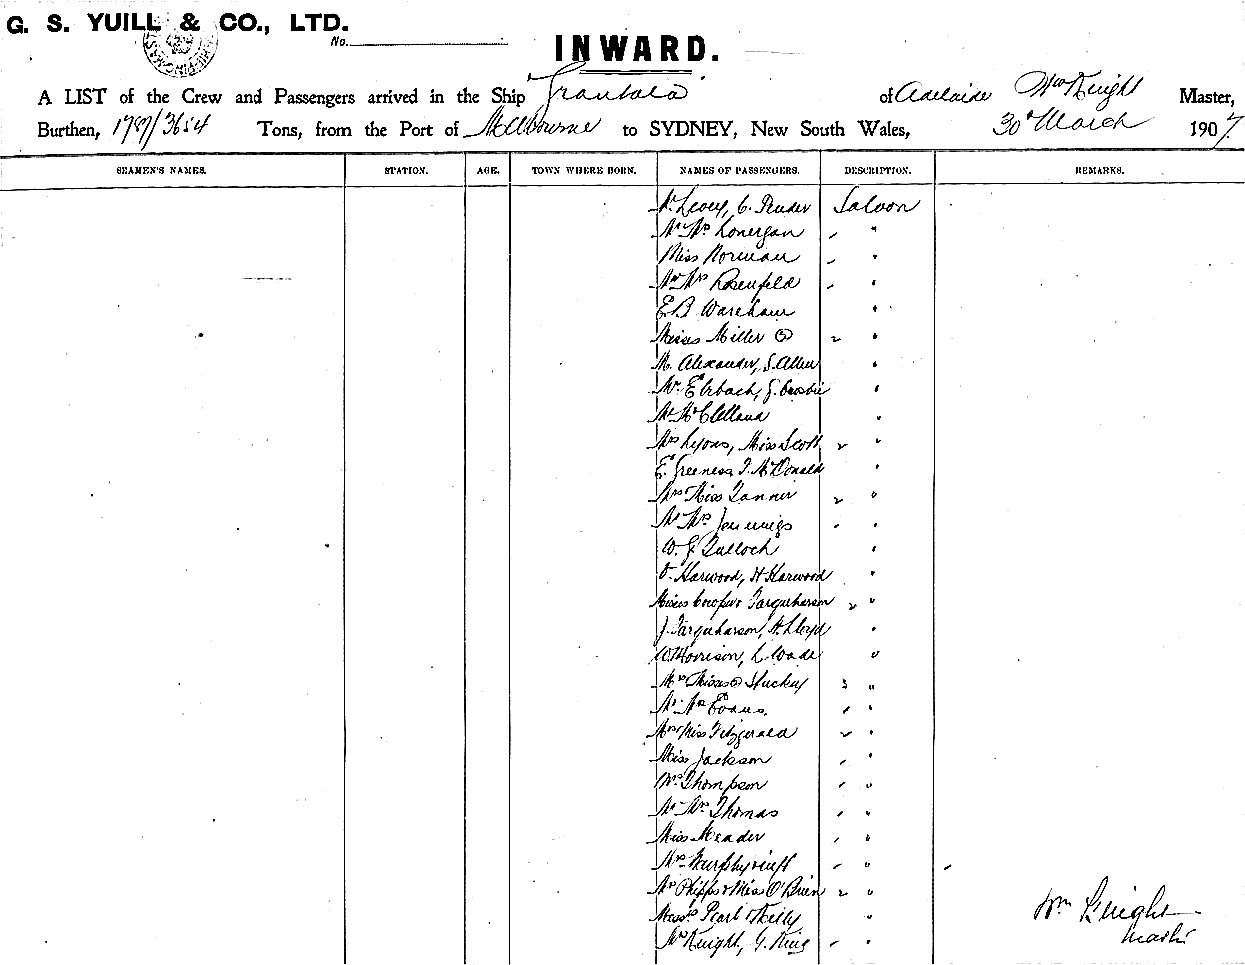 G. S. YUILL & CO., LTD.
No.
INWARD.
A LIST of the Crew and Passengers arrived in the Ship Grantala of Adelaide Wm Knight Master,
Burthen, 1787/3654 Tons, from the Port of Melbourne to SYDNEY, New South Wales, 30 March 1907
SEAMEN'S NAMES. STATION. AGE. TOWN WHERE BORN. NAMES OF PASSENGERS. DESCRIPTION. REMARKS.
Mr Levey, C. Pender Saloon
Mr Mrs Lonergan "
Miss Norman "
Mr Mrs Rosenfeld "
E B Wareham "
Misses Miller "
M. Alexander, S. Allen "
Mr Elsbach, J. Crosbie "
Mr McClelland "
Mrs Lyons, Miss Scott "
E. Greeness, McDonald "
Mrs Miss Tanner "
Mr Mrs Jennings "
W. J. Tulloch "
Harwood, H Harwood "
Misses Cooper & Farquharson "
J. Farquharson, H. Lloyd "
W Morrison, L. Wade "
Mrs Misses Stuckey 3 "
Mr Mrs Evans. "
Mrs Miss Fitzgerald "
Miss Jackson "
Mrs Thompson "
Mr Mrs Thomas "
Miss Meader "
Mrs Murphy "
Mrs Phipps & Miss O'Brien "
Messrs Pearl & Kelly "
Mrs Knight, G. King "
Wm Knight
Master